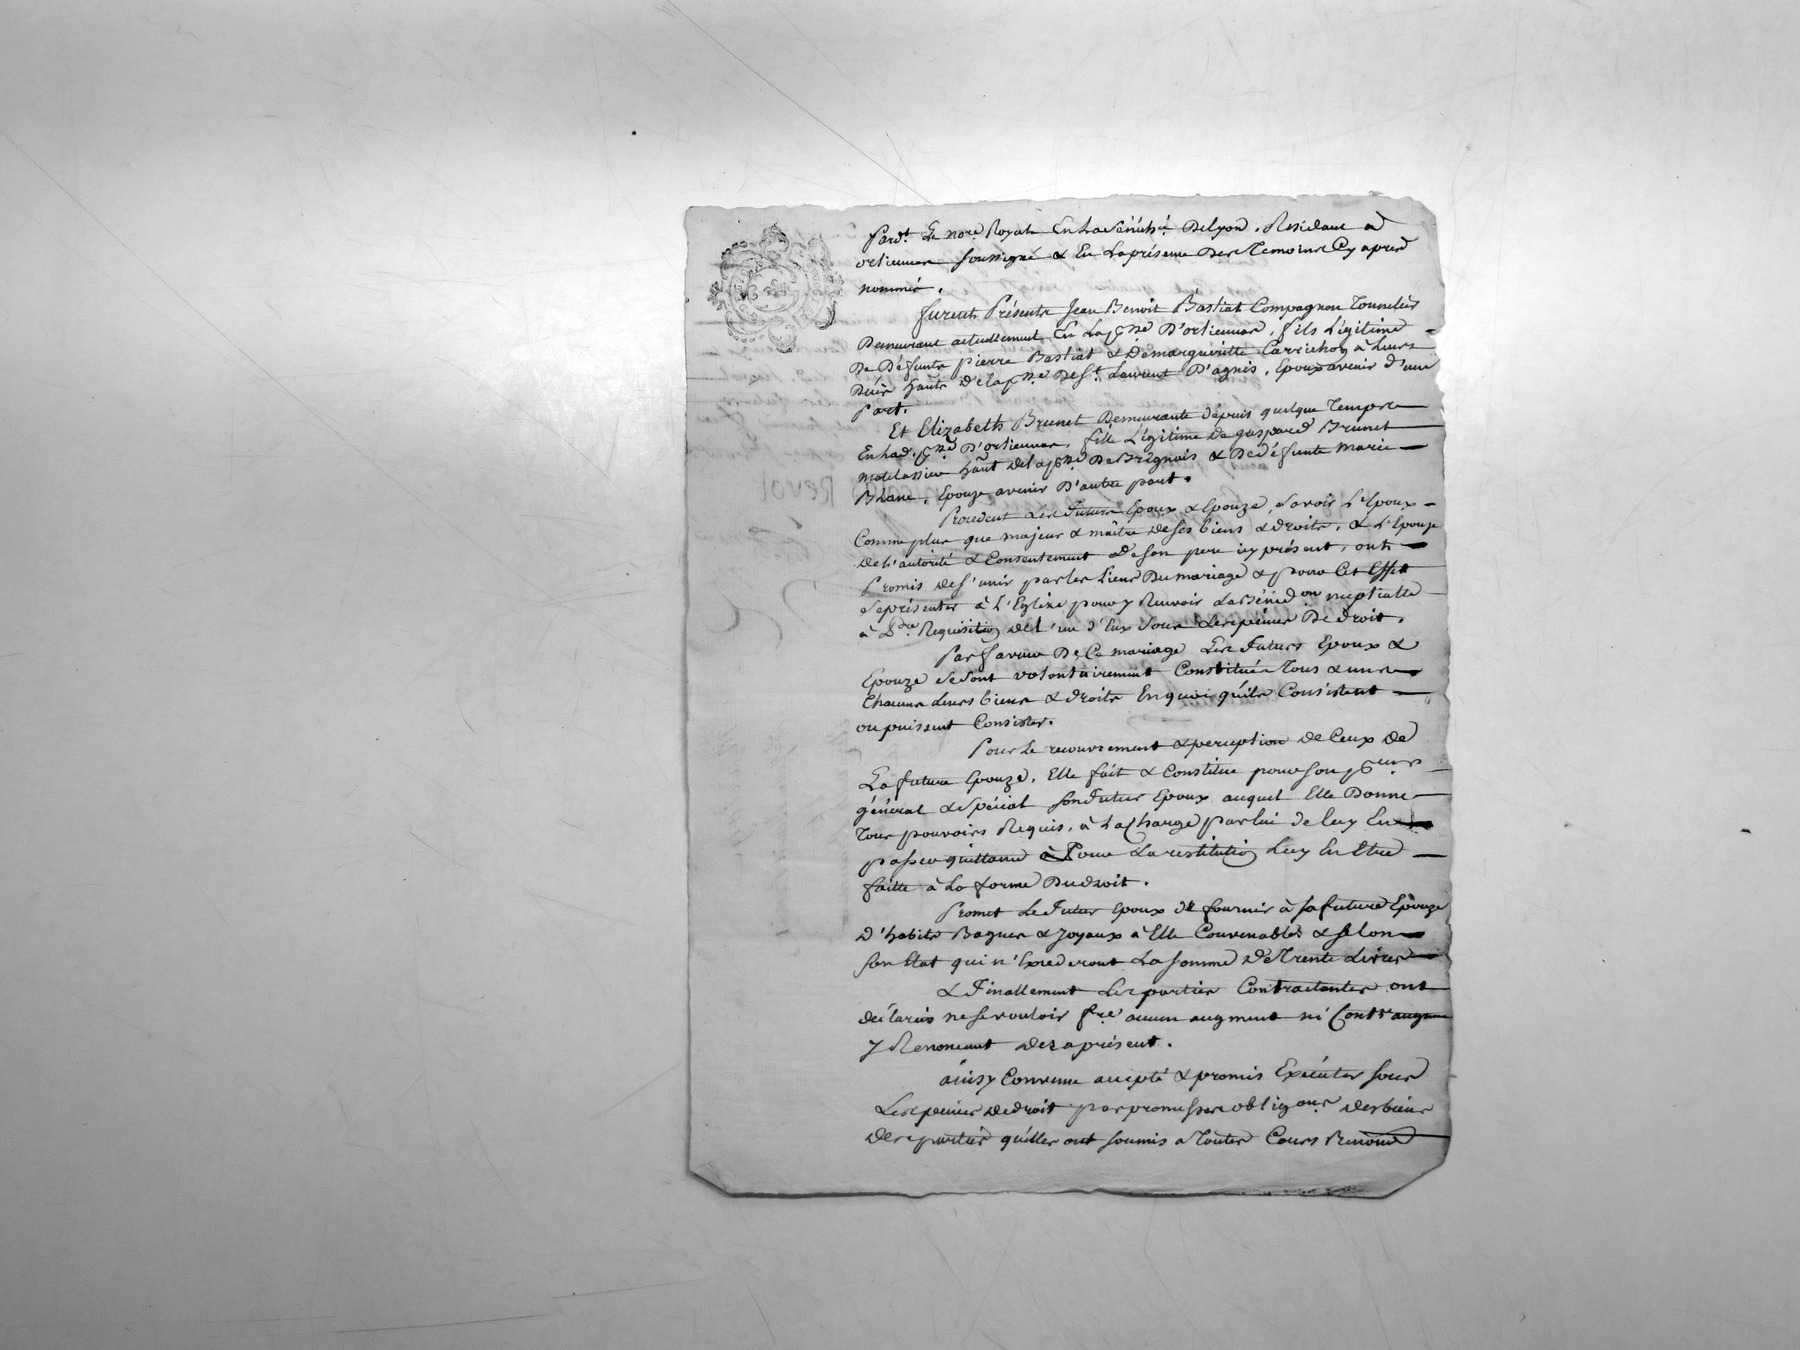 Pardt. Le nore. Royal En La Sénéché. De Lyon, Residant a
orliennas soussigné & En La présence Des Temoins Cy apres
nommés.
Furent Présents Jean Benoit Bastiat Compagnon Tonnelier
Demeurant actuellement En La psse. D'orliennas, fils Légitime
De Défunts pierre Bastiat & De margueritte Carrichon à Leurs
Décés hants. De la psse. De St. Laurent D'agnis, Epoux avenir d'une
Part.
Et Elizabeth Brunet Demeurante depuis quelque Temps
En Lad. psse. D'orliennas, fille Légitime De gaspard Brunet
matelassier hant. De la psse. De Brignais & De défunte Marie
Blanc, Epouze avenir D'autre part.
Procedent Les Futurs Epoux & Epouze, savoir L'Epoux
Comme plus que majeur & maitre De ses biens & droits, & L'Epouze
De L'autorité & Consentement De son pere icy présent, ont
Promis De s'unir par les Liens Du mariage & pour Cet Effet
se présenter à L'Eglize pour y Recevoir La Bénédon nuptialle
à Ldre. Requisition De L'un d'Eux sous Les peines De droit.
Par faveur De Ce mariage Les Futurs Epoux &
Epouze se sont volontairement Constitués Tous & uns
Chacuns Leurs biens & droits En quoi qu'ils Consistent
ou puissent Consister.
Pour Le recouvrement & perception De Ceux De
La future Epouze, Elle fait & Constitue pour son
général & spécial son Futur Epoux auquel Elle Donne
Tous pouvoirs Requis, à La Charge par lui de luy En
passer quittance Pour La restitution Luy En Etre
faitte à La forme Du droit.
Promet Le Futur Epoux de fournir à sa future Epouze
D'habits Bagues & Joyaux à Elle Convenables & selon
son Etat qui n'Excederont La somme De Trente Livres
& Finallement Les parties Contractantes ont
déclarées ne se vouloir fre. aucun augment ni Contr'augment
y Renoncant des a présent.
ainsy Convenu accepté & promis Exécuter sous
Les peines De droit par promesses obligons. Des biens
Des parties qu'elles ont soumis a Toutes Cours Renoncé